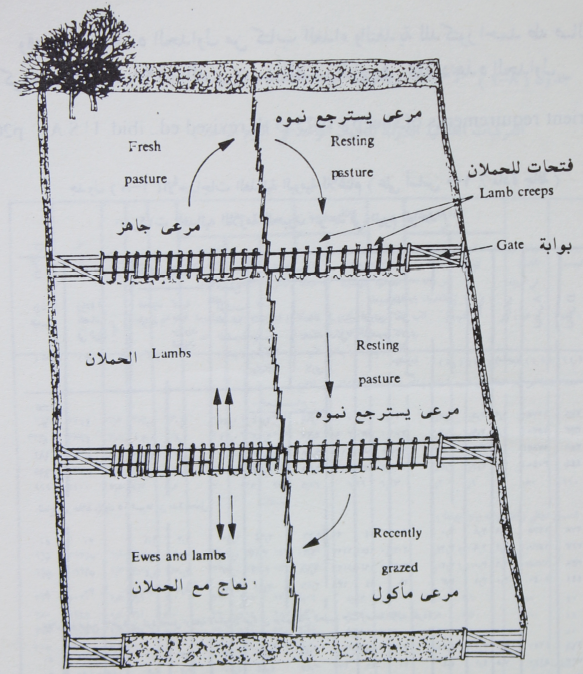 مرعى يسترجع نموه
Fresh
pasture
مرعى جاهز
Resting
pasture
فتحات للحملان
Lamb creeps
Gate بوابة
الحملان Lambs
Resting
pasture
مرعى يسترجع نموه
Ewes and lambs
نعاج مع الحملان
Recently
grazed
مرعى مأكول